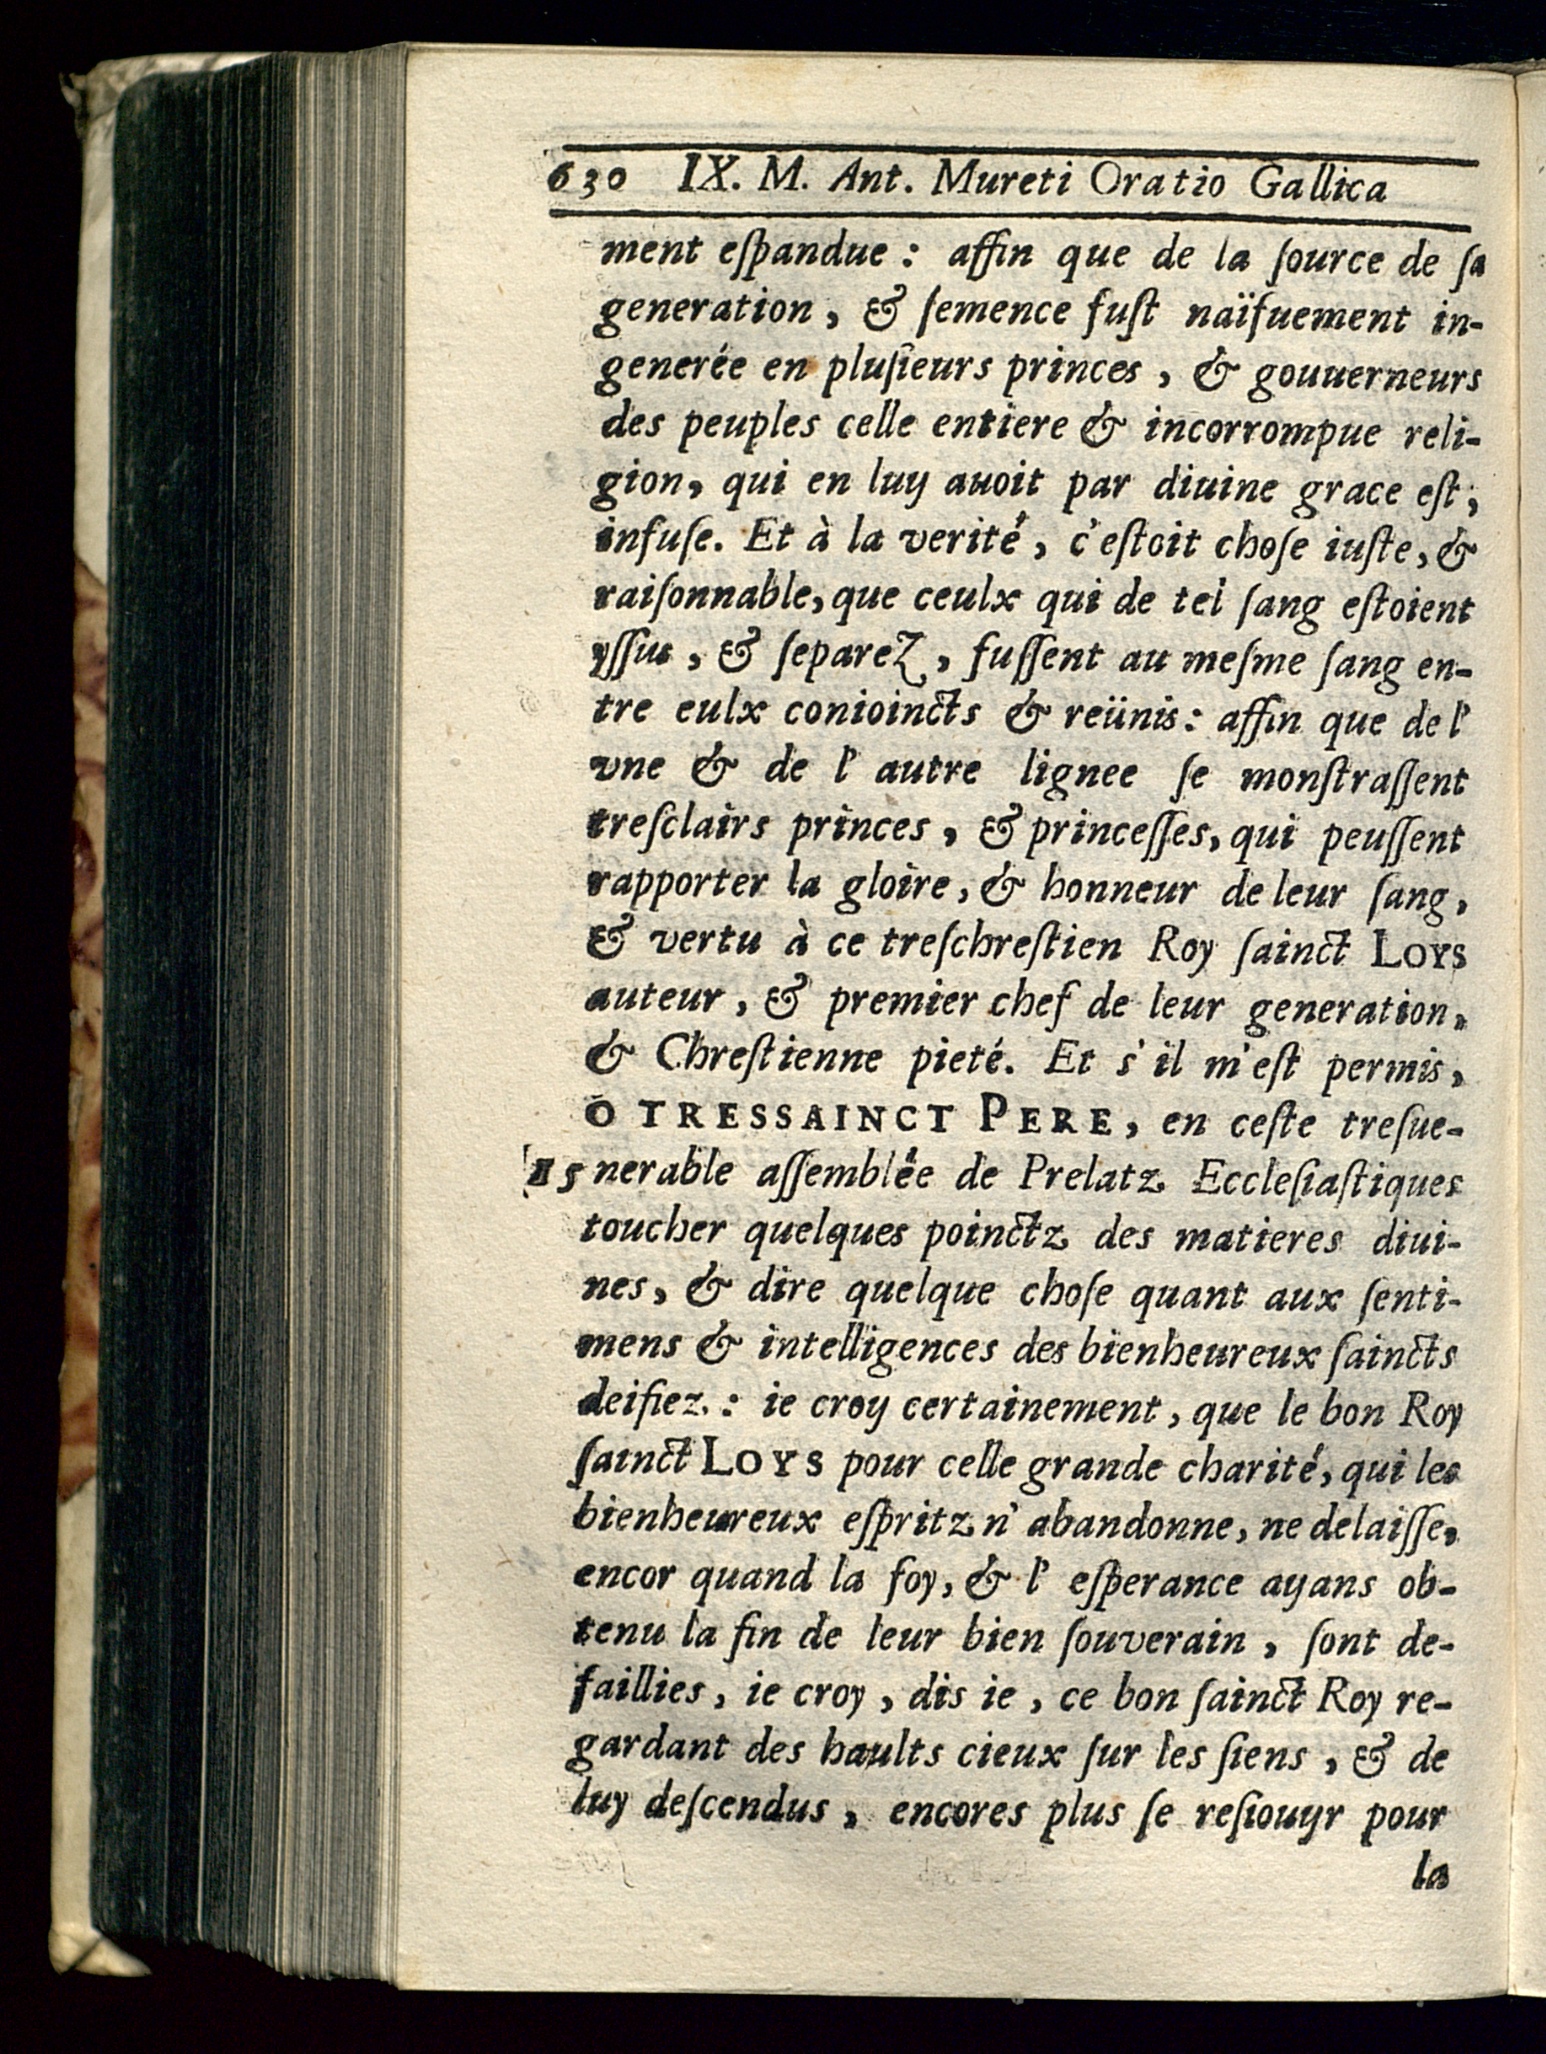 630 IX. M. Ant. Mureti Oratio Gallica
ment eſpandue : affin que de la ſource de ſa
generation, & ſemence fuſt naïfuement in-
generée en pluſieurs princes, & gouuerneurs
des peuples celle entiere & incorrompue reli-
gion, qui en luy auoit par diuine grace eſt,
infuſe. Et à la verité, c'eſtoit choſe iuſte, &
raiſonnable, que ceulx qui de tel ſang eſtoient
yſſus, & ſeparez, fuſſent au meſme ſang en-
tre eulx conioincts & reünis : affin que de l'
vne & de l' autre lignee ſe monſtraſſent
treſclairs princes, & princeſſes, qui peuſſent
rapporter la gloire, & honneur de leur ſang,
& vertu à ce treſchreſtien Roy ſainct LOYS
auteur, & premier chef de leur generation,
& Chreſtienne pieté. Et s'il m'eſt permis,
O TRESSAINCT PERE, en ceſte treſue-
15 nerable aſſemblée de Prelatz Eccleſiaſtiques
toucher quelques poinctz des matieres diui-
nes, & dire quelque choſe quant aux ſenti-
mens & intelligences des bienheureux ſaincts
deifiez : ie croy certainement, que le bon Roy
ſainct LOYS pour celle grande charité, qui les
bienheureux eſpritz n' abandonne, ne delaiſſe,
encor quand la foy, & l' eſperance ayans ob-
tenu la fin de leur bien ſouverain, ſont de-
faillies, ie croy, dis ie, ce bon ſainct Roy re-
gardant des haults cieux ſur les ſiens, & de
luy deſcendus, encores plus ſe reſiouyr pour
la